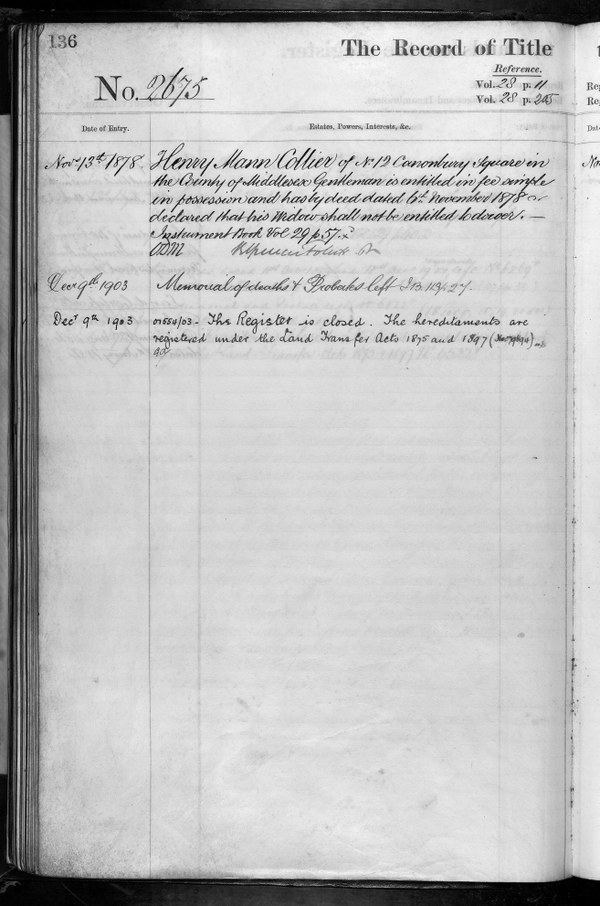 136
The Record of Title
No. 2675
Reference.
Vol. 28 p. 11
Vol. 28 p. 205
Date of Entry.
Estates, Powers, Interests, &c.
Novr 13th 1878
Henry Mann Collier of No 12 Canonbury Square in
the County of Middlesex Gentleman is entitled in fee simple
in possession and has by deed dated 6th November 1878
declared that his Widow shall not be entitled to dower. —
Instrument Book Vol 29 p. 57.
Decr 9th 1903
Memorial of deaths & Probates left I B 113/. 27
Decr 9th 1903
01554/03 - This Register is closed. The hereditaments are
registered under the Land Transfer Acts 1875 and 1897